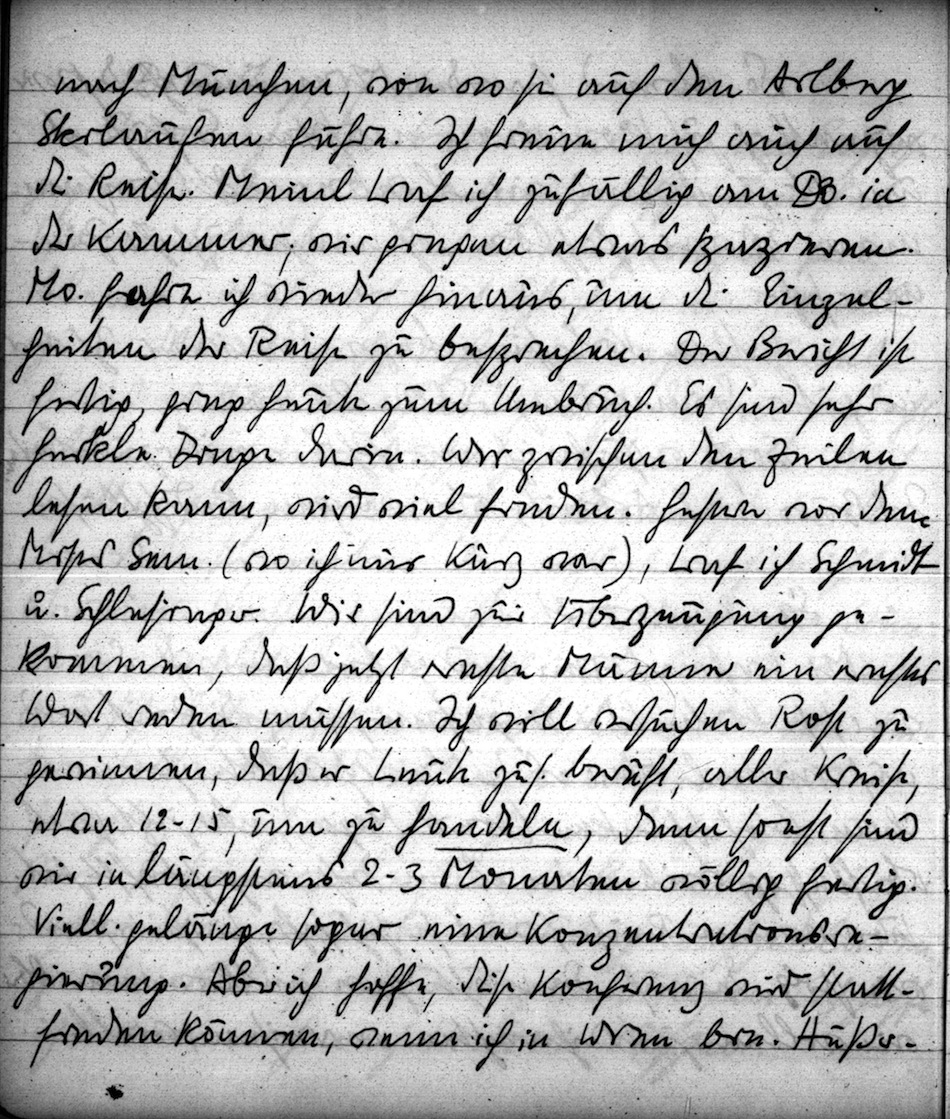 nach München, von wo sie auf den Arlberg
Skilaufen fährt. Ich freue mich auch auf
die Reise. Meinl traf ich zufällig am Do. in
der Kammer, wir gingen etwas spazieren.
Mo. fahre ich wieder hinaus, um die Einzel-
heiten der Reise zu besprechen. Der Bericht ist
fertig, ging heute zum Umbruch. Es sind sehr
heikle Dinge darin. Wer zwischen den Zeilen
lesen kann, wird viel finden. Gestern vor dem
Mises Sem. (wo ich nur kurz war), traf ich Schmidt
u. Schlesinger. Wir sind zur Überzeugung ge-
kommen, daß jetzt ernste Männer ein ernstes
Wort reden müssen. Ich will versuchen Rost zu
gewinnen, daß er Leute zus. beruft, aller Kreise,
etwa 12-15, um zu handeln, denn sonst sind
wir in längstens 2-3 Monaten völlig fertig.
Viell. gelänge sogar eine Konzentrationsre-
gierung. Aber ich hoffe, diese Konferenz wird statt-
finden können, wenn ich in Wien bin. Außer-